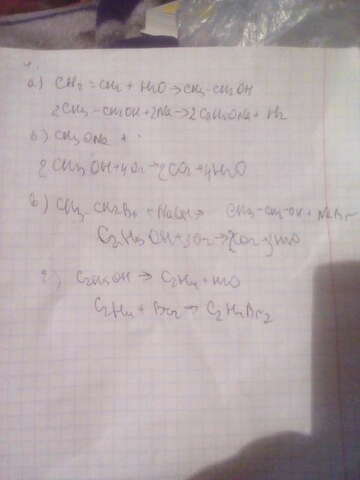 а) CH2 = CH2 + H2O → CH3-CH2OH
2CH3 - CH2OH + 2Na → 2C2H5ONa + H2
б) CH3ONa +
2CH3OH + 4O2 → 2CO2 + 4H2O
в) CH3-CH2Br + NaOH → CH3-CH2-OH + NaBr
C2H5OH + 3O2 → 2CO2 + 3H2O
г) C2H5OH → C2H4 + H2O
C2H4 + Br2 → C2H4Br2